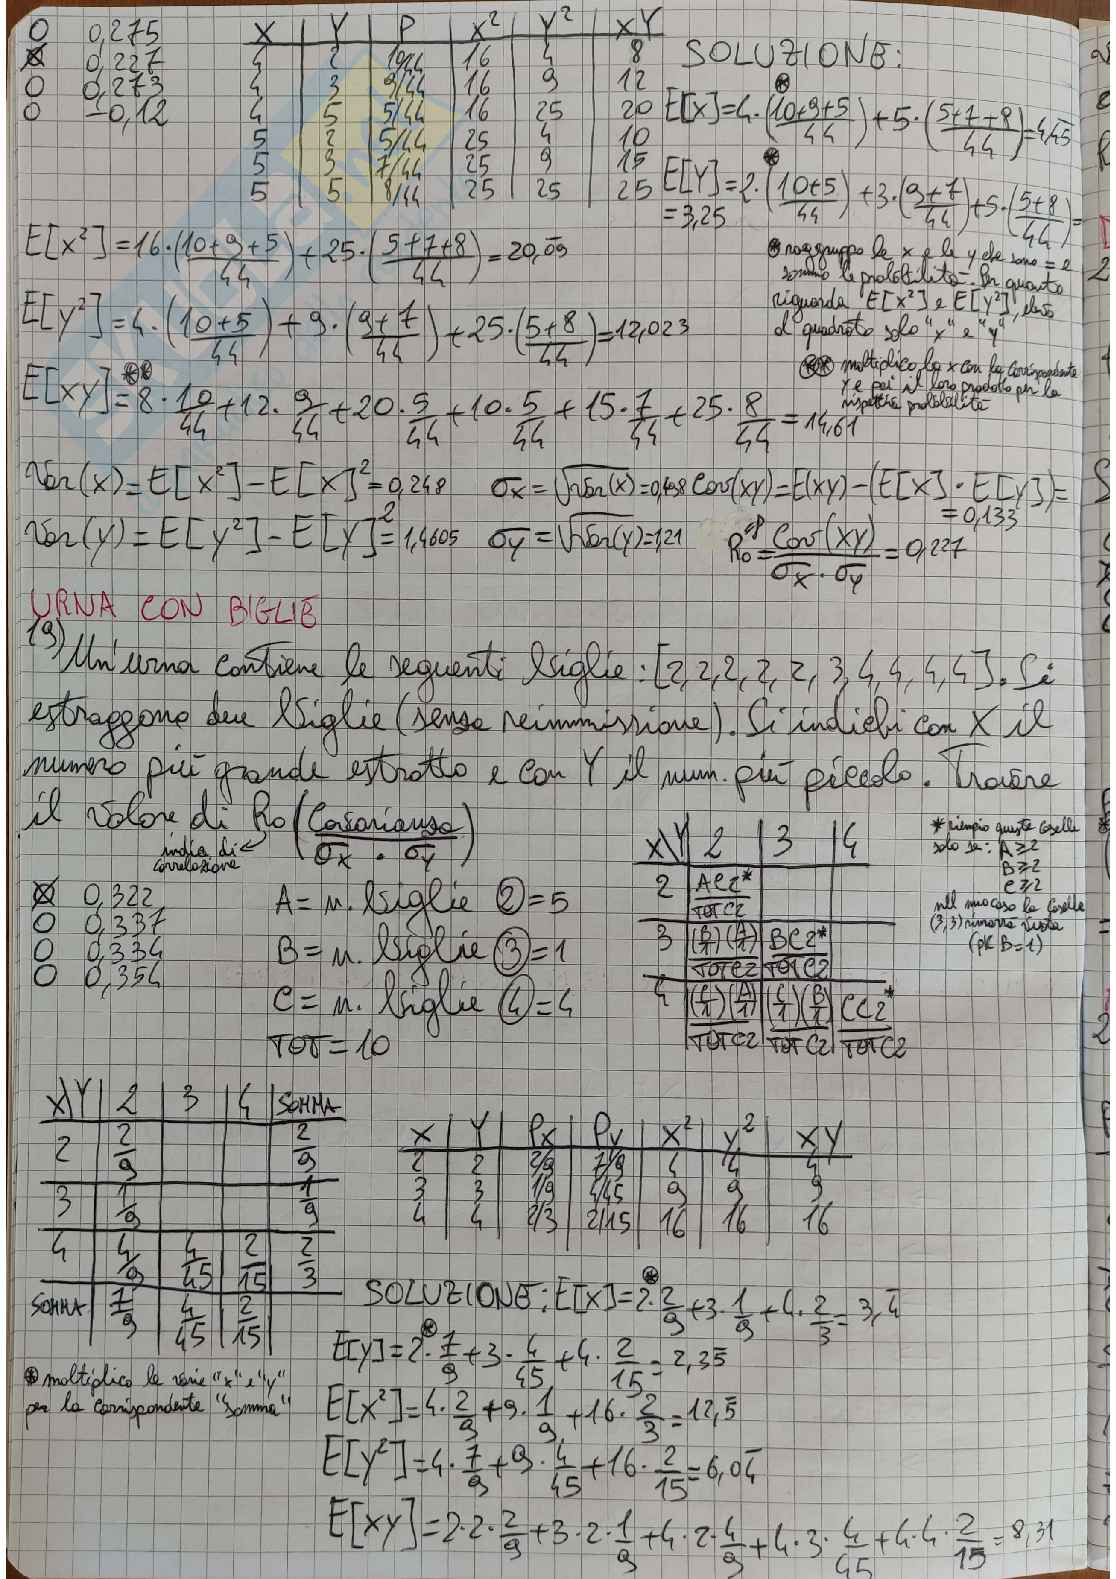 O 0,275
⊗ 0,227
O 0,273
O -0,12
X | Y | P | X² | Y² | XY
4 2 10/44 16 4 8
4 3 9/44 16 9 12
4 5 5/44 16 25 20
5 2 5/44 25 4 10
5 3 7/44 25 9 15
5 5 8/44 25 25 25
SOLUZIONE:
E[X]=4·((10+9+5)/44)+5·((5+7+8)/44)=4,45
E[Y]=2·((10+5)/44)+3·((9+7)/44)+5·((5+8)/44)=
=3,25
E[x²]=16·((10+9+5)/44)+25·((5+7+8)/44)=20,09
E[y²]=4·((10+5)/44)+9·((9+7)/44)+25·((5+8)/44)=12,023
⊛ raggruppo le x e le y che sono = e
sommo le probabilità. Per quanto
riguarda E[x²] e E[y²], elevo
al quadrato solo "x" e "y"
E[xy]=8·10/44+12·9/44+20·5/44+10·5/44+15·7/44+25·8/44=14,61
⊛⊛ moltiplico la x con la corrispondente
y e poi il loro prodotto per la
rispettiva probabilità
Var(x)=E[x²]-E[x]²=0,248 σx=√Var(x)=0,498 Cov(xy)=E(xy)-(E[x]·E[y])=
=0,133
Var(y)=E[y²]-E[y]²=1,4605 σy=√Var(y)=1,21 Ro=Cov(xy)/(σx·σy)=0,227
URNA CON BIGLIE
19) Un'urna contiene le seguenti biglie: [2,2,2,2,2,3,4,4,4,4]. Si
estraggono due biglie (senza reimmissione). Si indichi con X il
numero più grande estratto e con Y il num. più piccolo. Trovare
il valore di Ro (Covarianza/(σx·σy))
indice di
correlazione
⊗ 0,322
O 0,337
O 0,334
O 0,354
A= n. biglie ②=5
B= n. biglie ③=1
C= n. biglie ④=4
TOT=10
X\Y | 2 | 3 | 4
2 AC2*/TOTC2
3 (B/1)(A/1)/TOTC2 BC2*/TOTC2
4 (C/1)(A/1)/TOTC2 (C/1)(B/1)/TOTC2 CC2*/TOTC2
* riempio queste caselle
solo se: A≥2
B≥2
C≥2
nel mio caso la casella
(3,3) rimarrà vuota
(pk B=1)
X\Y | 2 | 3 | 4 | SOMMA
2 2/9 2/9
3 1/9 1/9
4 4/9 4/45 2/15 2/3
SOMMA 7/9 4/45 2/15
X | Y | Px | Py | X² | Y² | XY
2 2 2/9 7/9 4 4 4
3 3 1/9 4/45 9 9 9
4 4 2/3 2/15 16 16 16
SOLUZIONE: E[X]=2·2/9+3·1/9+4·2/3=3,4
E[y]=2·7/9+3·4/45+4·2/15=2,35
⊛ moltiplico le varie "x" e "y"
per la corrispondente "somma"
E[x²]=4·2/9+9·1/9+16·2/3=12,5
E[y²]=4·7/9+9·4/45+16·2/15=6,04
E[xy]=2·2·2/9+3·2·1/9+4·2·4/9+4·3·4/45+4·4·2/15=8,31